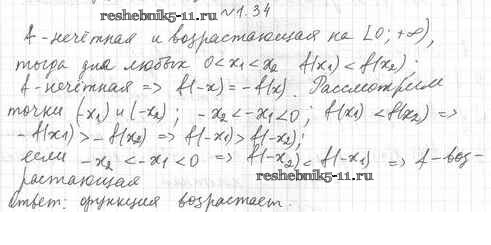 reshebnik5-11.ru №1.34
f - нечётная и возрастающая на [0; +∞),
тогда для любых 0 < x₁ < x₂ f(x₁) < f(x₂).
f - нечётная => f(-x) = -f(x). Рассмотрим
точки (-x₁) и (-x₂); -x₂ < -x₁ < 0; f(x₁) < f(x₂) =>
-f(x₁) > -f(x₂) => f(-x₁) > f(-x₂);
если -x₂ < -x₁ < 0 => f(-x₂) < f(-x₁) => f - воз-
растающая reshebnik5-11.ru
Ответ: функция возрастает.